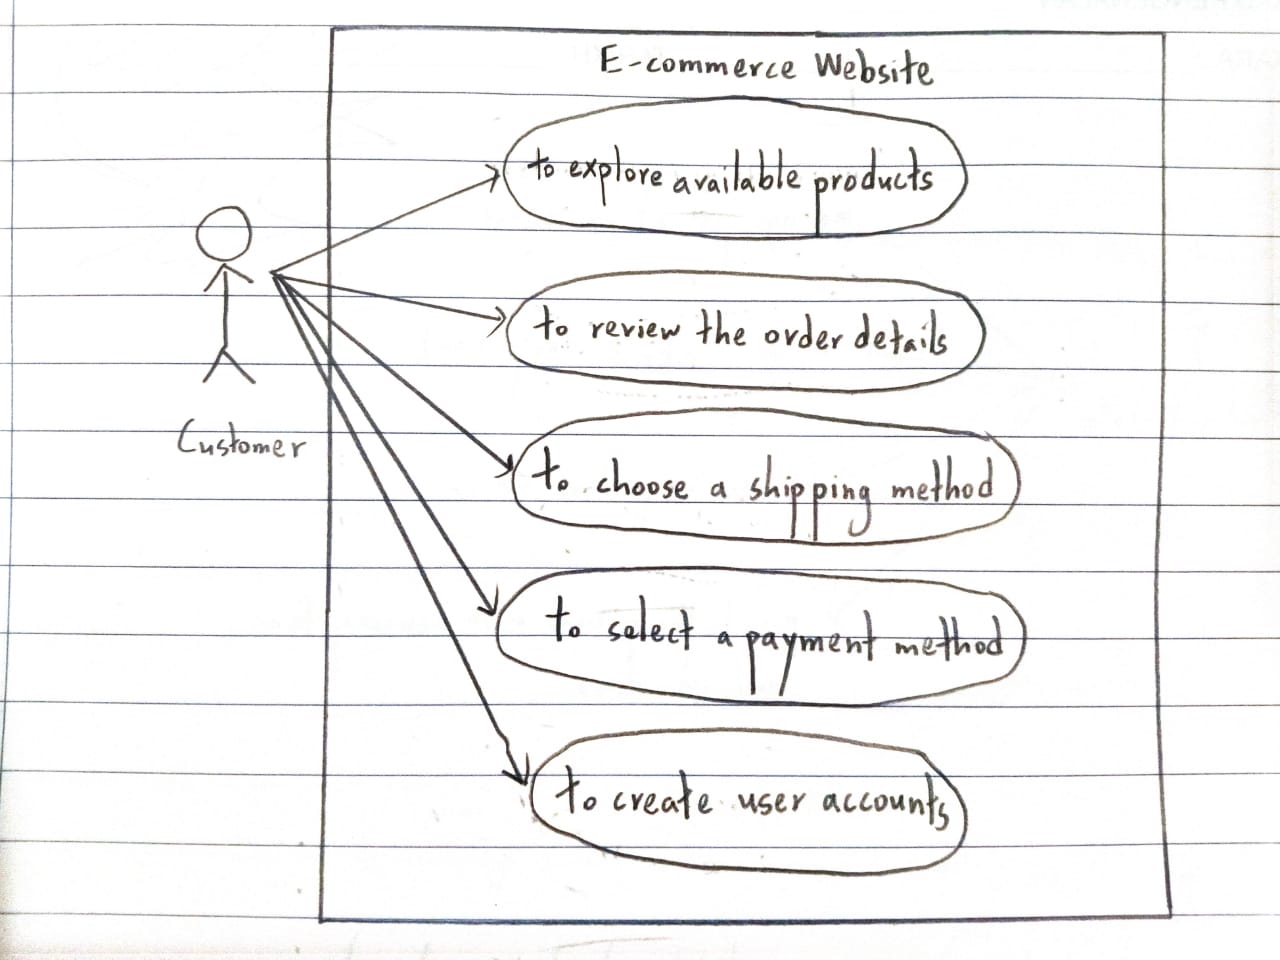 E-commerce Website
to explore available products
to review the order details
Customer
to choose a shipping method
to select a payment method
to create user accounts